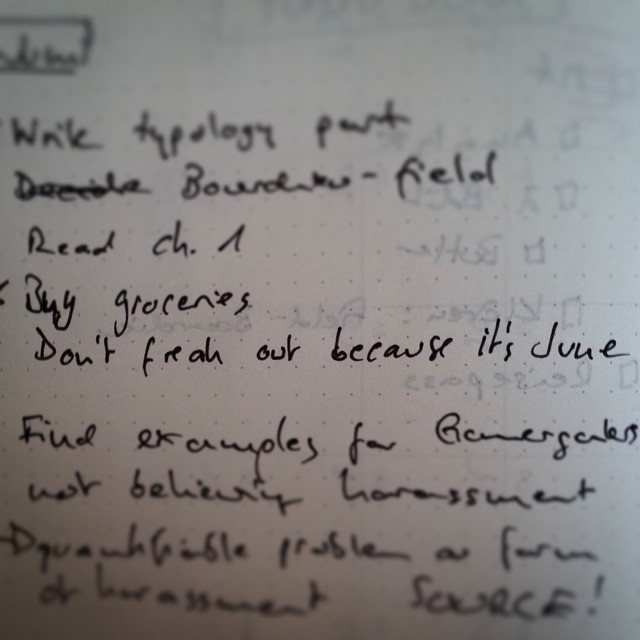 Write typology part
Bourdieu - field
Read ch. 1
Buy groceries
Don't freak out because it's June
Find examples for Gamergaters
not believing harassment
quantifiable problem as form
of harassment SOURCE!